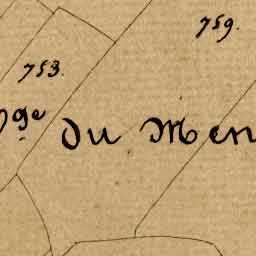 759.
753.
du Men